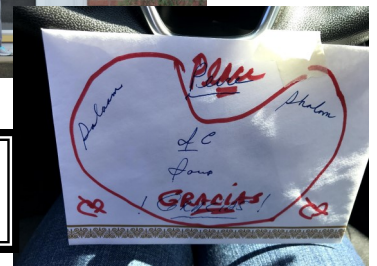 Peace
Salaam
Shalom
IC
Iowa
! GRACIAS !